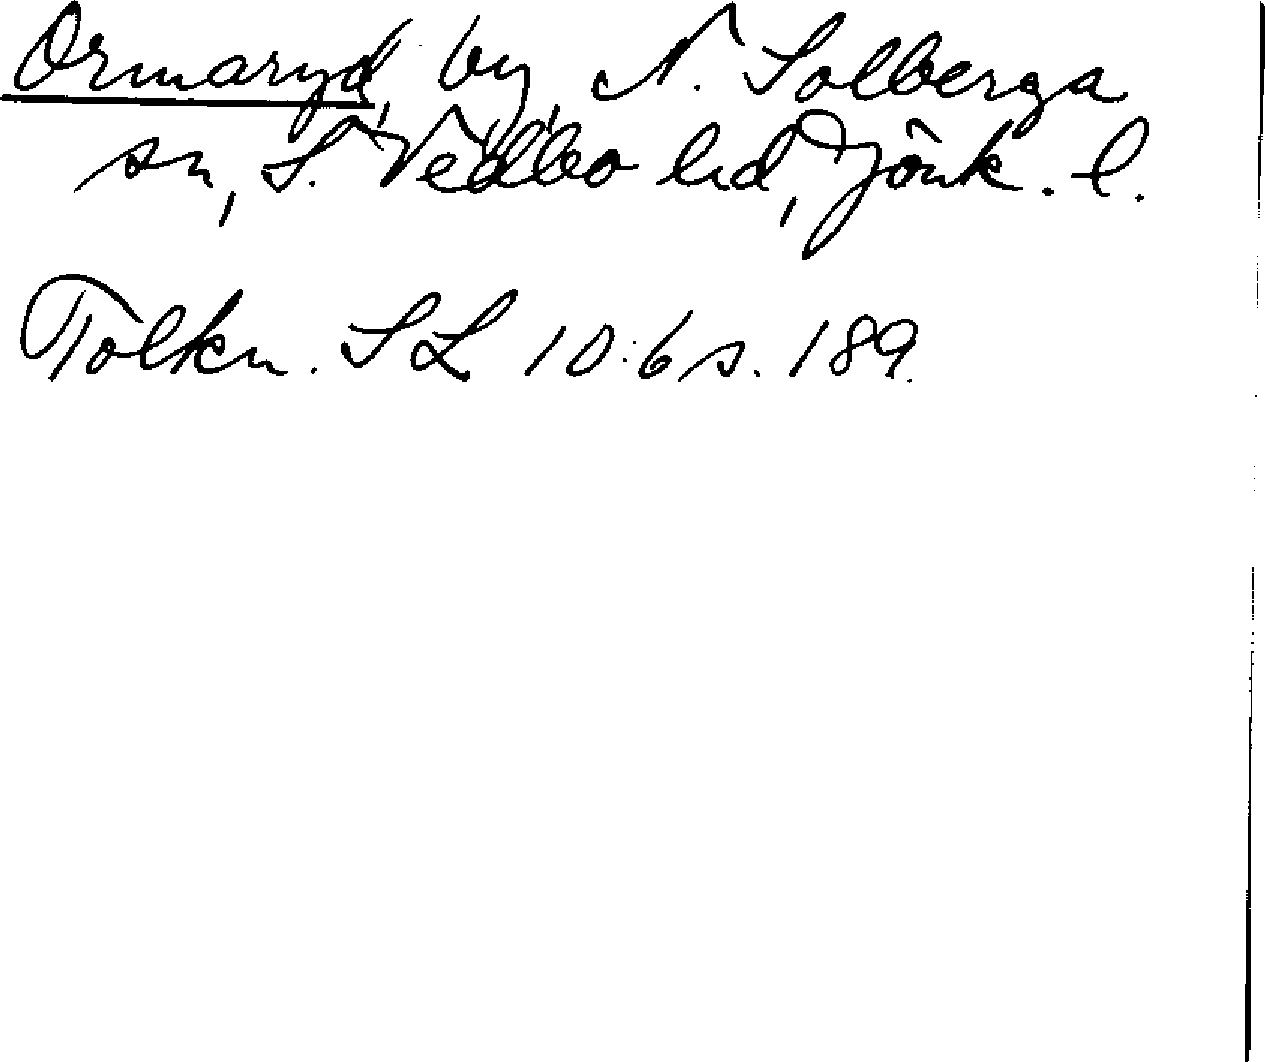 Ormaryd, by, N. Solberga
sn, S. Vedbo hd, Jönk. l.
Tolkn. SL 10:6 s. 189.